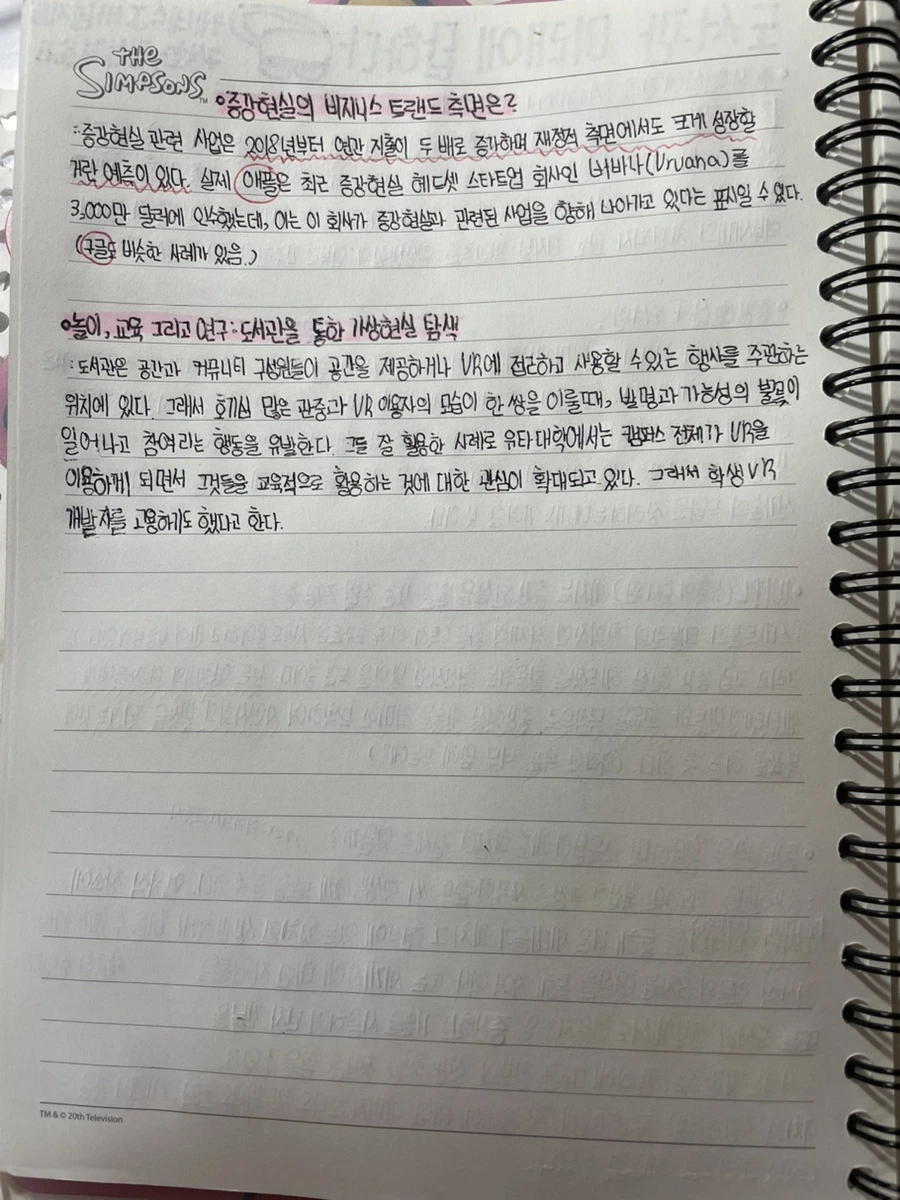 THE
SIMPSONS™
•증강현실의 비지니스 트랜드 측면은?
:증강현실 관련 사업은 2018년부터 연간 지출이 두 배로 증가하며 재정적 측면에서도 크게 성장할
거란 예측이 있다. 실제 애플은 최근 증강현실 헤드셋 스타트업 회사인 버바나(Vrvana)를
3,000만 달러에 인수했는데, 이는 이 회사가 증강현실과 관련된 사업을 향해 나아가고 있다는 표시일 수 있다.
(구글도 비슷한 사례가 있음.)
•놀이, 교육 그리고 연구:도서관을 통한 가상현실 탐색
:도서관은 공간과 커뮤니티 구성원들이 공간을 제공하거나 VR에 접근하고 사용할 수 있는 행사를 주관하는
위치에 있다. 그래서 호기심 많은 관중과 VR 이용자의 모습이 한 쌍을 이룰때, 발명과 가능성의 불꽃이
일어나고 참여라는 행동을 유발한다. 그들 잘 활용한 사례로 유타대학에서는 캠퍼스 전체가 VR을
이용하게 되면서 그것들을 교육적으로 활용하는 것에 대한 관심이 확대되고 있다. 그래서 학생 VR
개발자를 고용하기도 했다고 한다.
TM & © 20th Television